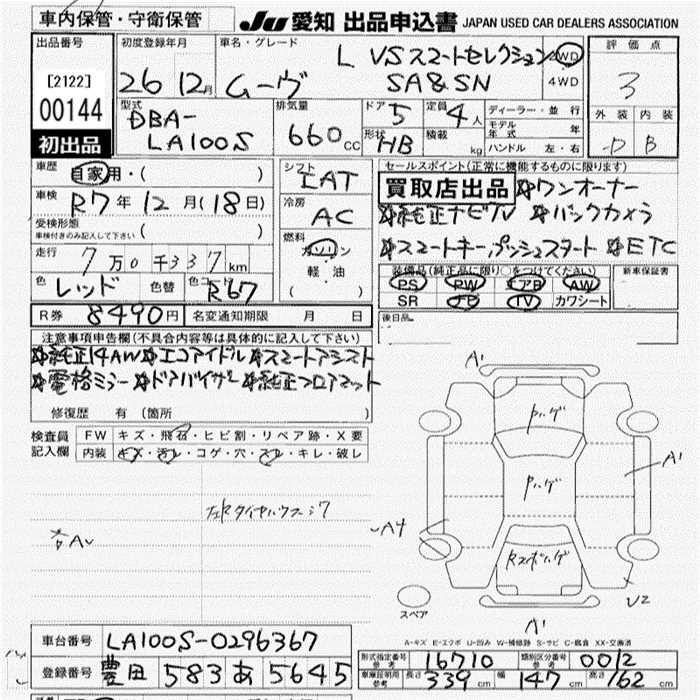 車内保管・守衛保管
JU 愛知 出品申込書 JAPAN USED CAR DEALERS ASSOCIATION
出品番号 初度登録年月 車名・グレード 評価点
[2122] 26年 12月 ムーヴ L VSスマートセレクション 2WD
SA&SN 4WD
3
00144
初出品
型式 DBA-
LA100S
排気量 660cc
ドア 5 定員 4人
形状 HB 積載 kg
ディーラー・並行
モデル年式 年
ハンドル 左・右
外装 内装
D B
車歴 自家用・( )
車検 R7年 12月(18日)
受検形態 ( )
車検付きのみ記入して下さい
走行 7万0千337km
色 レッド 色替 色コード R67
シフト IAT
冷房 AC
燃料 ガソリン
軽油
( )
セールスポイント(正常に機能するものに限ります)
買取店出品 ※ワンオーナー
※純正ナビTV ※バックカメラ
※スマートキー,プッシュスタート ※ETC
装備品(純正品に限り○をつけてください) 新車保証書
PS PW エアB AW
SR ナビ TV カワシート
R券 8490円 名変通知期限 月 日
後日品
注意事項申告欄(不具合内容等は具体的に記入して下さい)
※純正14AW※エコアイドル※スマートアシスト
※電格ミラー※ドアバイザー※純正フロアマット
修復歴 有(箇所 )
検査員 FW キズ・飛石・ヒビ割・リペア跡・X要
記入欄 内装 キズ・汚レ・コゲ・穴・スレ・キレ・破レ
A1
Pハゲ
A1
Pハゲ
A4
Rスポハゲ
U2
スペア
A1
A-キズ E-エクボ U-凹み W-補修跡 S-サビ C-腐食 XX-交換済
車台番号 LA100S-0296367
登録番号 豊田 583 あ 5645
形式指定番号 参考 16710 類別区分番号 参考 0012
車庫証明用 参考 長さ 339cm 幅 147cm 高さ 162cm